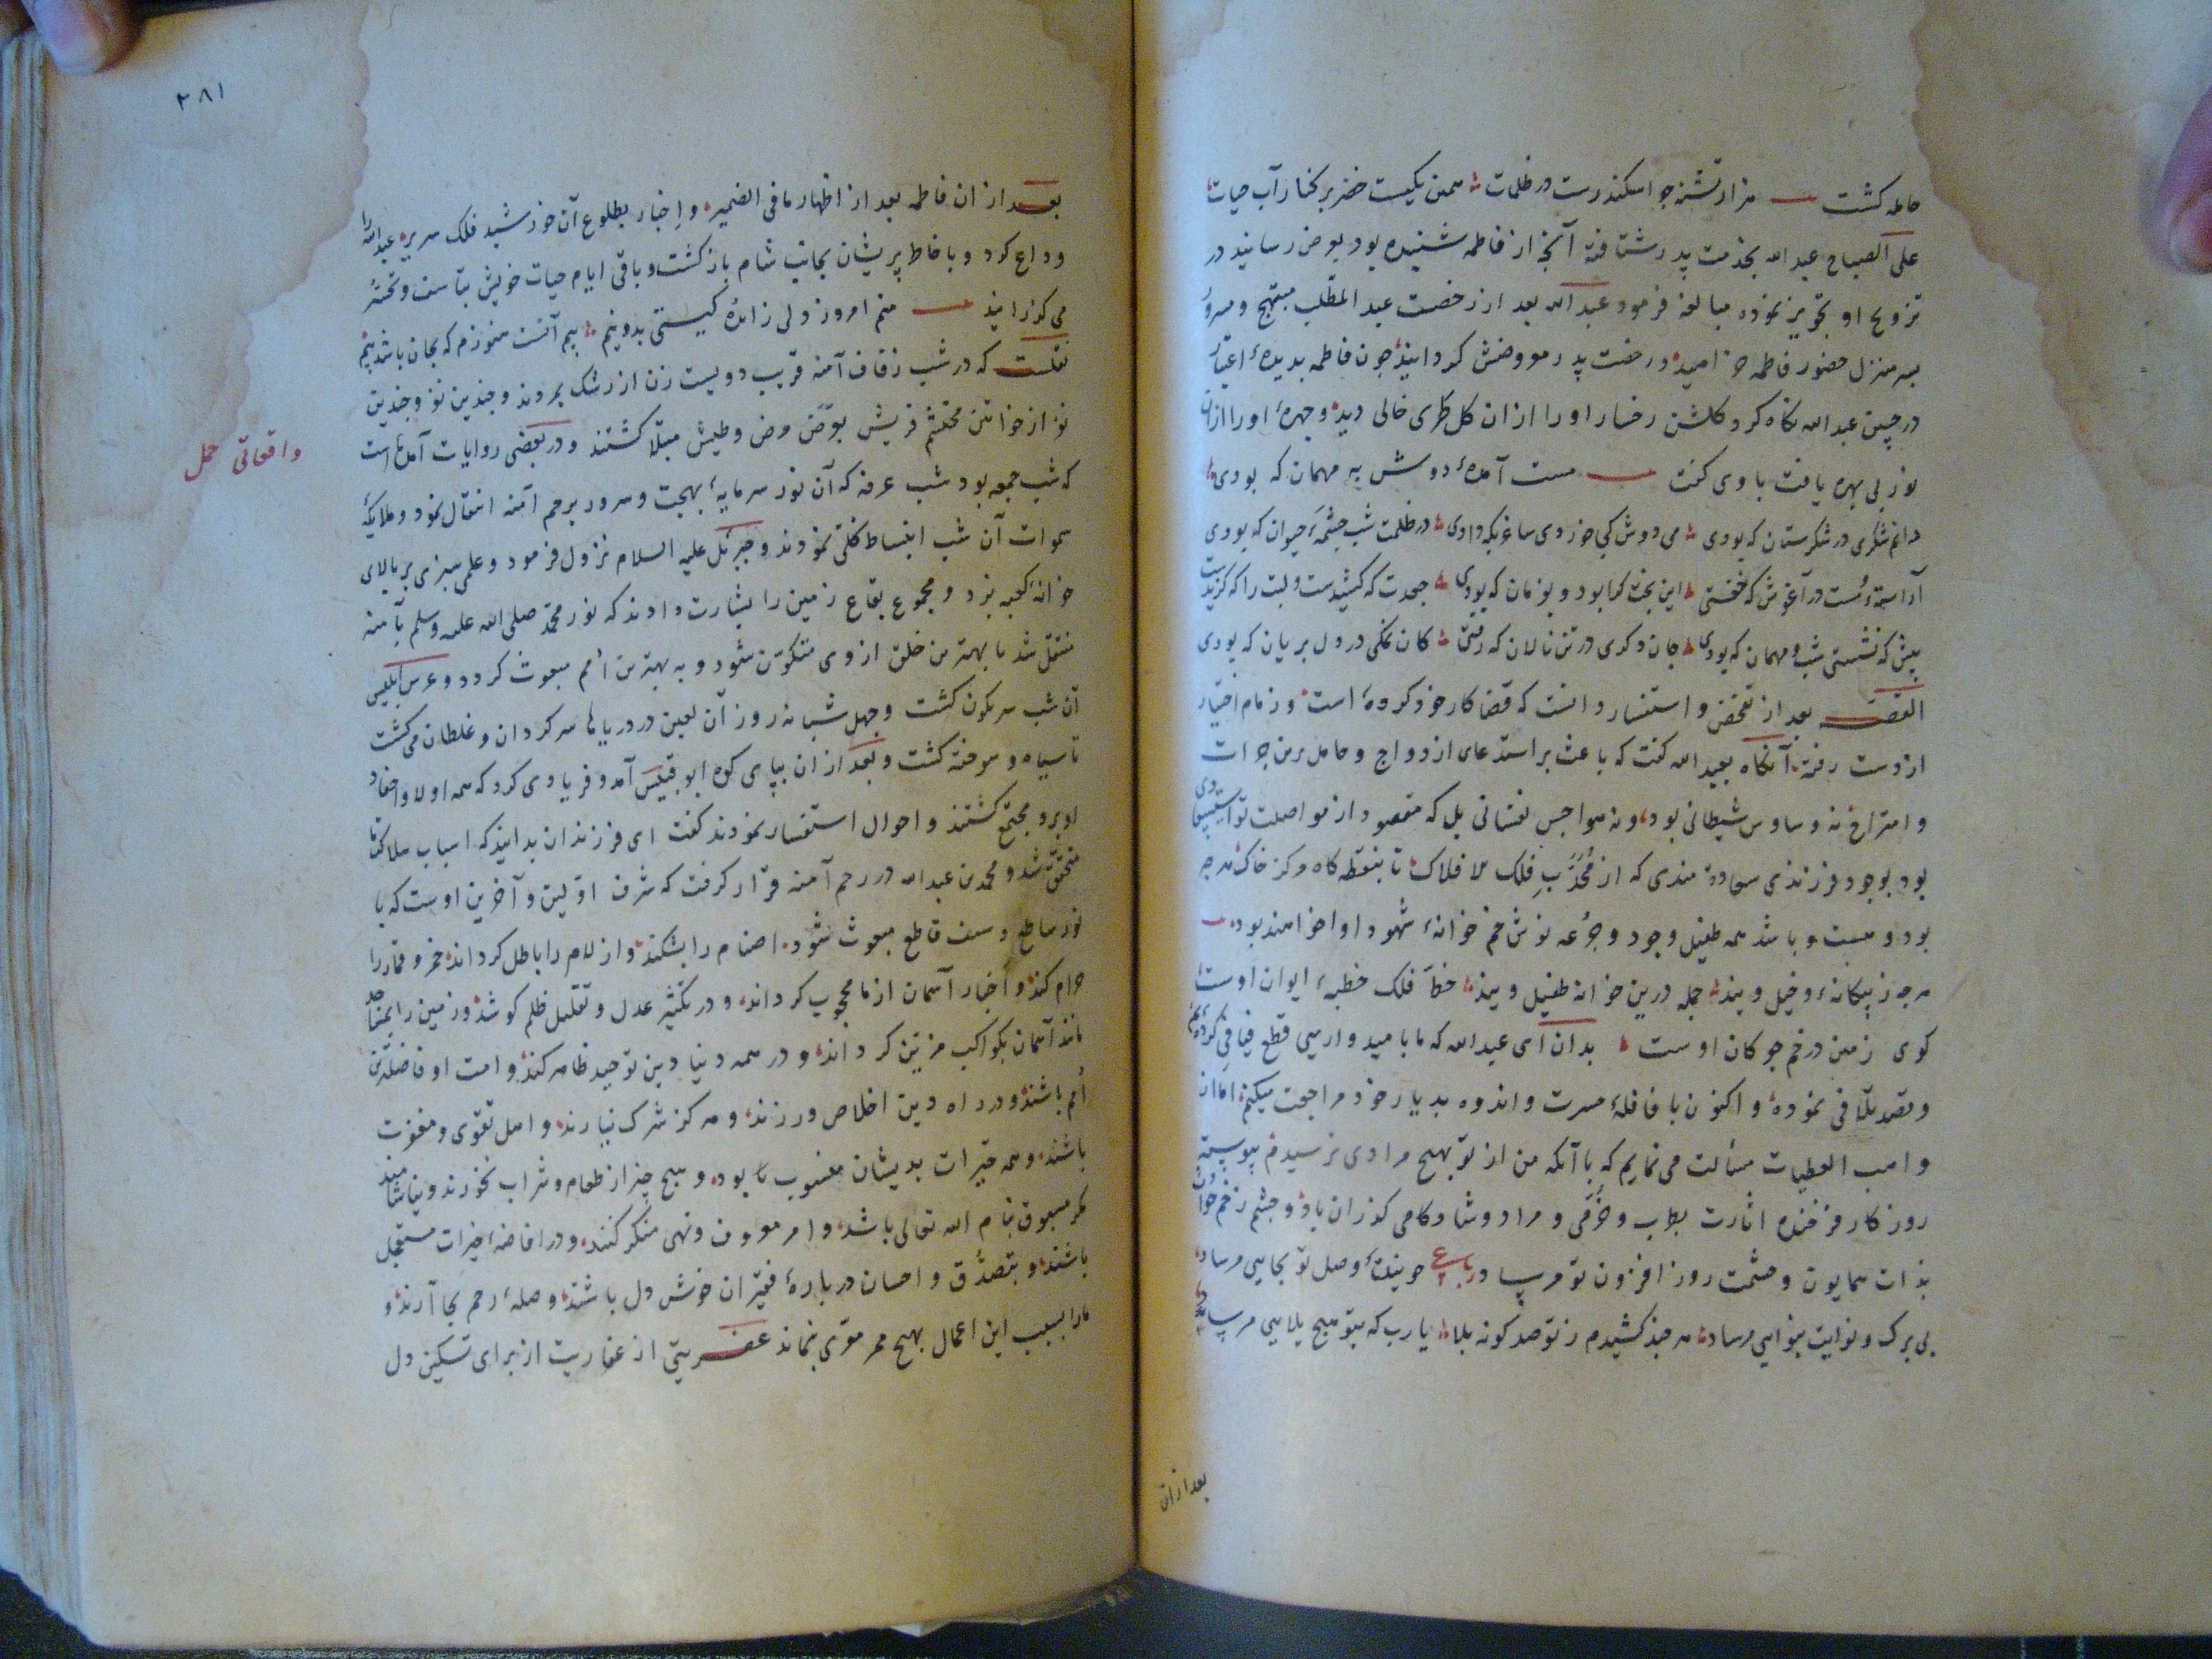 حامله کشت هزار تشنه جو اسکندرست در ظلمات همین یکیست خضر بر کنار آب حیات
علی الصباح عبد الله بخدمت پدر شتافته آنچه از فاطمه شنیده بود بعرض رسانید در
تزویج او تجویز نموده مبالغه فرمود عبد الله بعد از رخصت عبد المطلب مبتهج و مسرور
بسرمنزل حضور فاطمه خرامیده ورخصت پدر معروضش کردانید جون فاطمه بدیدهٔ اعتبار
در جبین عبد الله نکاه کرد کلشن رخسار او را از ان کل طری خالی دید و جهرهٔ او را ازان
نور بی بهره یافت با وی کفت مست آمدهٔ دوش به مهمان که بودی
دانم شکری در شکرستان که بودی می دوش کجا خوردی ساغر بکه دادی در ظلمت شب جشمهٔ حیوان که بودی
آراسته مست در آغوش که خفتی این بخت کرا بود و بفرمان که بودی جعدت که کشیدست و لبت را که کزیدست
پیش که نشستی شب و مهمان که بودی جان دکری در تن نالان که رفتی کان نمکی در دل بریان که بودی
القصه بعد از تفحص و استفسار دانست که قضا کار خود کرده است و زمام اختیار
از دست رفته آنکاه بعبد الله کفت که باعث بر استدعای ازدواج و حامل برین جرات
و امتزاج نه وساوس شیطانی بود و نه هواجس نفسانی بل که مقصود از مواصلت تو
بود بوجود فرزندی سعادة مندی که از محدب فلک لا فلاک تا بنقطه کاه مرکز خاک هرجه
بود و هست و باشد همه طفیل وجود و جرعه نوش خم خوانهٔ شهود او اخوامند بود
هرجه ز بیکانه و خیل ویند جمله درین خوانه طفیل ویند خط فلک خطبهٔ ایوان اوست
کوی زمین در خم جوکان اوست بدان ای عبد الله که ما بامید وارسی قطع فیافی کرده
وقصد تلاقی نموده و اکنون با قافلهٔ حسرت و اندوه بدیار خود مراجعت میکنم اما از
واهب العطیات مسألت می نمایم که با آنکه من از تو بهیچ مرادی نرسیدم پیوسته
روزکار فرخنده اثارت بطرب و خرمی و مراد وشادکامی کذران باد و جشم زخم
بذات همایون و حشمت روز افزون تو مرساد رباعی جویندهٔ وصل تو بجایی مرساد
بی برک و نوایت بنوایی مرساد هر جند کشیدم ز تو صد کونه بلا یارب که بتو هیچ بلایی مرساد
بعد ازان
۳۸۱
بعد از ان فاطمه بعد از اظهار ما فی الضمیر و اخبار بطلوع آن خورشید فلک سریر عبد الله را
وداع کرد و با خاطر پریشان بجانب شام بازکشت و باقی ایام حیات خویش بتأسف و تحسر
می کذرانید منم امروز و دلی زاندهٔ کیستی بدونیم بیم آنست هنوزم که بجان باشد بیم
نقلست که در شب زفاف آمنه قریب دویست زن از رشک بمردند و جندین نفر و جندین
نفر از خواتین محتشم قریش بعوض مرض و طیش مبتلا کشتند و در بعضی روایات آمده است
که شب جمعه بود شب عرفه که آن نور سرمایهٔ بهجت و سرور برحم آمنه انتقال نمود و ملایکهٔ
سموات آن شب انبساط کلی نمودند و جبرئل علیه السلام نزول فرمود و علمی سبزی بر بالای
خوانهٔ کعبه بزد و مجموع بقاع زمین را بشارت دادند که نور محمد صلی الله علیه وسلم بآمنه
منتقل شد تا بهترین خلق از وی متکون شود و به بهترین امم مبعوث کردد و عرش ابلیس
آن شب سرنکون کشت و جهل شبانه روز آن لعین در دریاها سرکردان و غلطان می کشت
تا سیاه و سوخته کشت و بعد از ان ببپای کوه ابو قبیس آمد و فریادی کرد که همه اولاد و احفاد
او برو مجتمع کشتند و احوال استفسار نمودند کفت ای فرزندان بدانید که اسباب هلاک شما
متحقق شد و محمد بن عبد الله در رحم آمنه قرار کرفت که شرف اولین و آخرین اوست که با
نور ساطع و سیف قاطع مبعوث شود اصنام را بشکند و ازلام را باطل کرداند خمر و قمار را
حرام کند و اخبار آسمان از ما محجوب کرداند و در تکثیر عدل و تقلیل ظلم کوشد و زمین را بمساجد
مانند آسمان بکواکب مزین کرداند و در همه دنیا دین توحید ظاهر کند و امت او فاضلترین
امم باشند و در راه دین اخلاص ورزند و هرکز شرک نیارند و اهل تقوی و مغفرت
باشند و همه خیرات بدیشان منسوب بود و هیچ چیز از طعام و شراب نخورند و نیاشامند
مکر مسبوق بنام الله تعالی باشد و امر معروف و نهی منکر کنند و در افاضهٔ خیرات مستعجل
باشند و بتصدق و احسان دربارهٔ فقیران خوش دل باشند و صلهٔ رحم بجا آرند و
ما را بسبب این اعمال بهیچ ممر مقری نماند عفریتی از عفاریت از برای تسکین دل
واقعاتی حمل